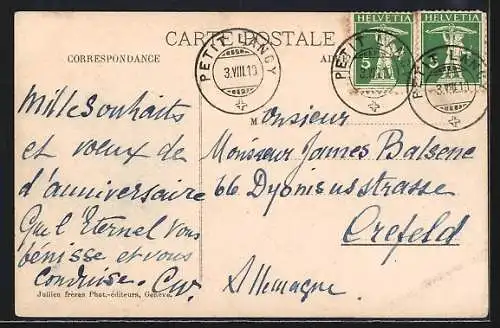 CARTE POSTALE
CORRESPONDANCE
HELVETIA
5
HELVETIA
5
PETIT LANCY
3.VIII.13
PETIT LANCY
PETIT LANCY
3.VIII.13
Mille souhaits
et voeux de
d'anniversaire
Que l'Eternel vous
bénisse et vous
conduise. CW.
M
onsieur
Monsieur James Balsene
66 Dyonisusstrasse
Crefeld
Allemagne.
Jullien frères Phot.-éditeurs, Genève.